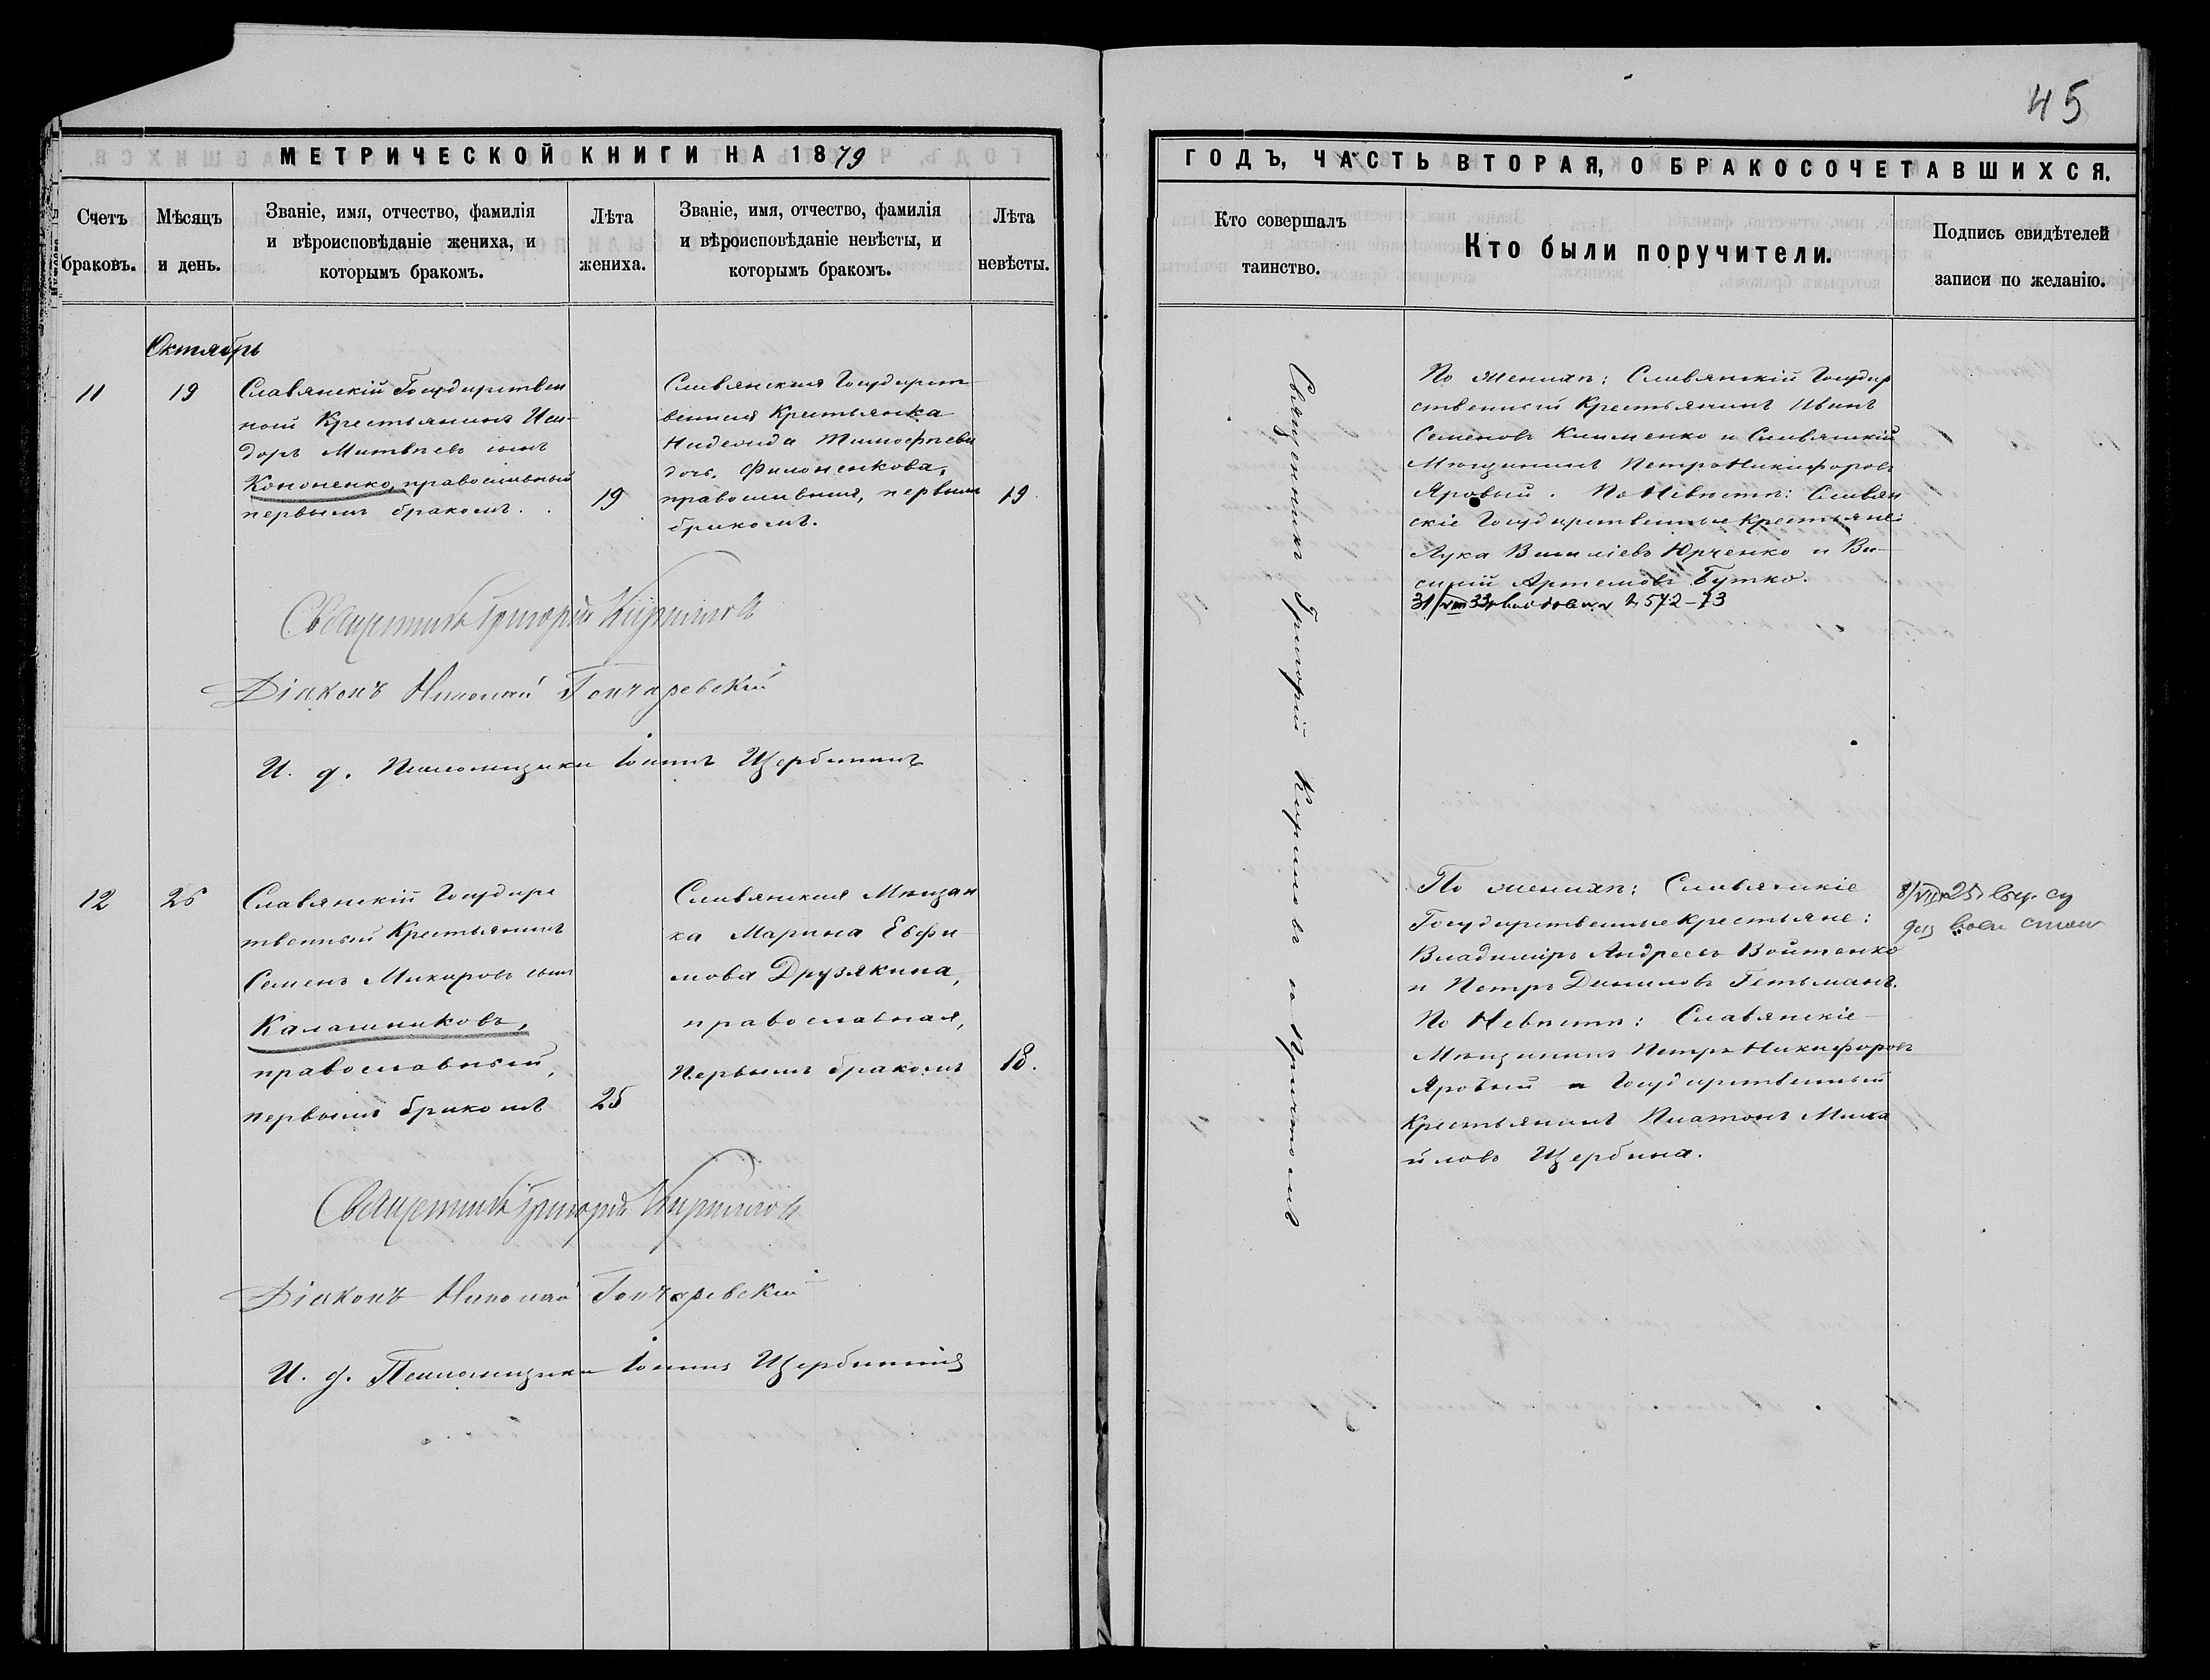 45
МЕТРИЧЕСКОЙ КНИГИ НА 1879
ГОДЪ, ЧАСТЬ ВТОРАЯ, О БРАКОСОЧЕТАВШИХСЯ.
Счетъ браковъ.
Мѣсяцъ и день.
Званіе, имя, отчество, фамилія
и вѣроисповѣданіе жениха, и
которымъ бракомъ.
Лѣта
жениха.
Званіе, имя, отчество, фамилія
и вѣроисповѣданіе невѣсты, и
которымъ бракомъ.
Лѣта
невѣсты.
Кто совершалъ
таинство.
Кто были поручители.
Подпись свидѣтелей
записи по желанію.
Октябрь
11
19
Славянскій Государствен
ной Крестьянинъ Иси-
доръ Матвѣевъ сынъ
Кононенко, православный
первымъ бракомъ.
19
Славянская Государст-
венная Крестьянка
Надежда Тимофѣева
дочь, Филоненкова,
православная, первымъ
бракомъ.
19
Священникъ Григорій Кириловъ и Причтомъ
По женихѣ: Славянскій Государ
ственный Крестьянинъ Иванъ
Семеновъ Клименко и Славянскій
Мѣщанинъ Петръ Никифоровъ
Яровый. По Невѣстѣ: Славян
скіе Государственные Крестьяне:
Лука Василіевъ Юрченко и Ва-
силій Артемовъ Бутко.
31/VIII 33 2572-73
Священникъ Григорій Кириловъ
Діаконъ Николай Гончаревскій
И. д. Псаломщика Іоаннъ Щербининъ
12
26
Славянскій Государс
твенный Крестьянинъ
Семенъ Макаровъ сынъ
Калашниковъ,
православный,
первымъ бракомъ
25
Славянская Мѣщан
ка Марина Евфи-
мова Друзякина,
православная,
первымъ бракомъ
18.
По женихѣ: Славянскіе
Государственные крестьяне:
Владиміръ Андреевъ Войтенко
и Петръ Даниловъ Гетьманъ.
По Невѣстѣ: Славянскіе
Мѣщанинъ Петръ Никифоровъ
Яровый и Государственный
Крестьянинъ Платонъ Миха
йловъ Щербина.
8/VII 25
Священникъ Григорій Кириловъ
Діаконъ Николай Гончаревскій
И. д. Псаломщика Іоаннъ Щербининъ